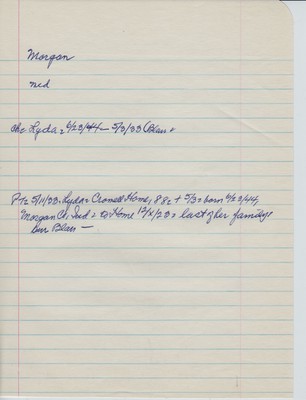 Morgan
Ind
Lyda, 6/23/44 – 5/3/33 (Blair +
5/11/33, Lyda, Cromell Home, 88 + 5/3, born 6/23/44,
Morgan Co, Ind, to Home 12/X/23, last of her family,
bur Blair —